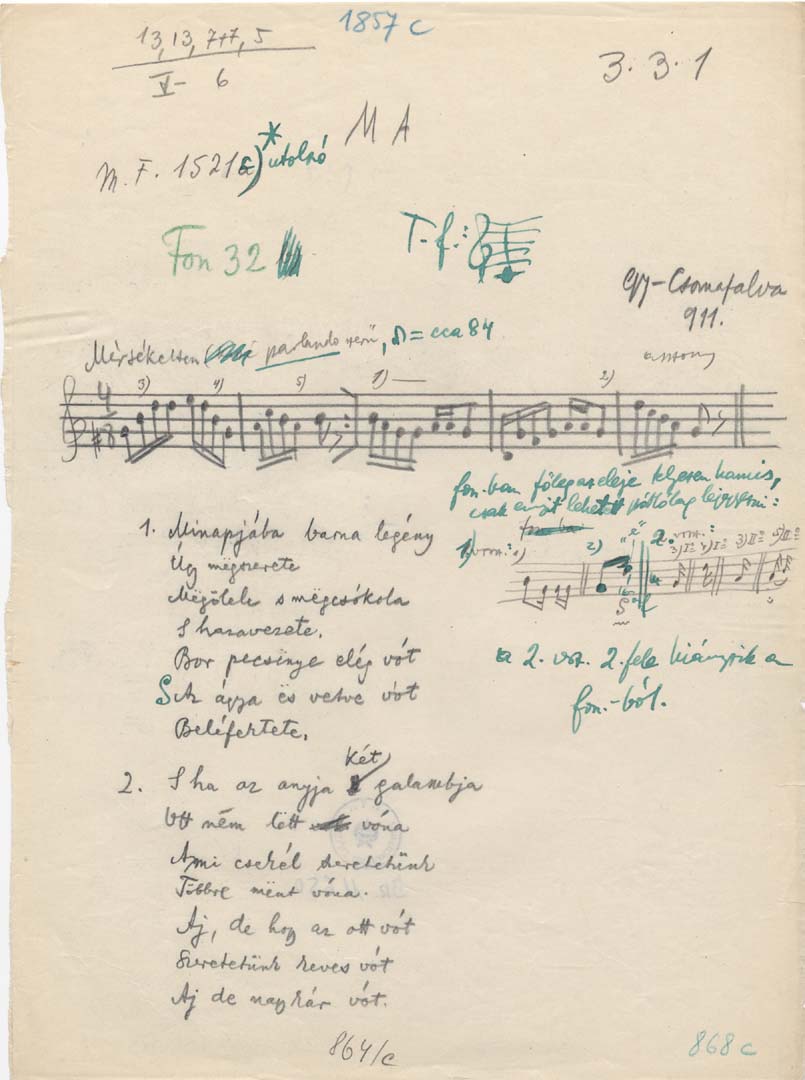 1857 c
13, 13, 7+7, 5
V - 6
3. 3. 1
M A
M. F. 1521 c) * utolsó
Fon 32
T-f.:
Gy-Csomafalva
911.
Mérsékelten parlando szerű, ♪ = cca 84
asszony
3) 4) 5) 1) 2)
4
8
fon.-ban főleg az eleje teljesen hamis,
csak ennyit lehetett utólag lejegyezni:
1) vrsz.: 1) 2) 2. vrsz.: 3) 4) 3) 5)
1. Minapjába barna legény
Úgy mëgszerete
Mëgölele s mëgcsókola
S hazavezete,
Bor pecsënye elég vót
S Az ágya ës vetve vót
Beléfektete,
a 2. vsz. 2. fele hiányzik a
fon.-ból.
2. S ha az anyja két galambja
Ott nëm lëtt vóna
A mi csekél szeretetünk
Többre mënt vóna.
Aj, de hogy az ott vót
Szeretetünk keves vót
Aj de nagy kár vót.
864/c
868 c